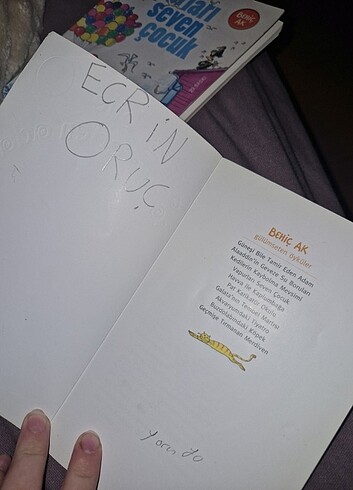 seven
çocuk
BEHİÇ
AK
ECRİN
ORUÇ
BEHİÇ AK
gülümseten öyküler
Güneşi Bile Tamir Eden Adam
Alaaddin'in Geveze Su Boruları
Kedilerin Kaybolma Mevsimi
Vapurları Seven Çocuk
Havva ile Kaplumbağa
Pat Karikatür Okulu
Galata'nın Tembel Martısı
Akvaryumdaki Tiyatro
Buzdolabındaki Köpek
Geçmişe Tırmanan Merdiven